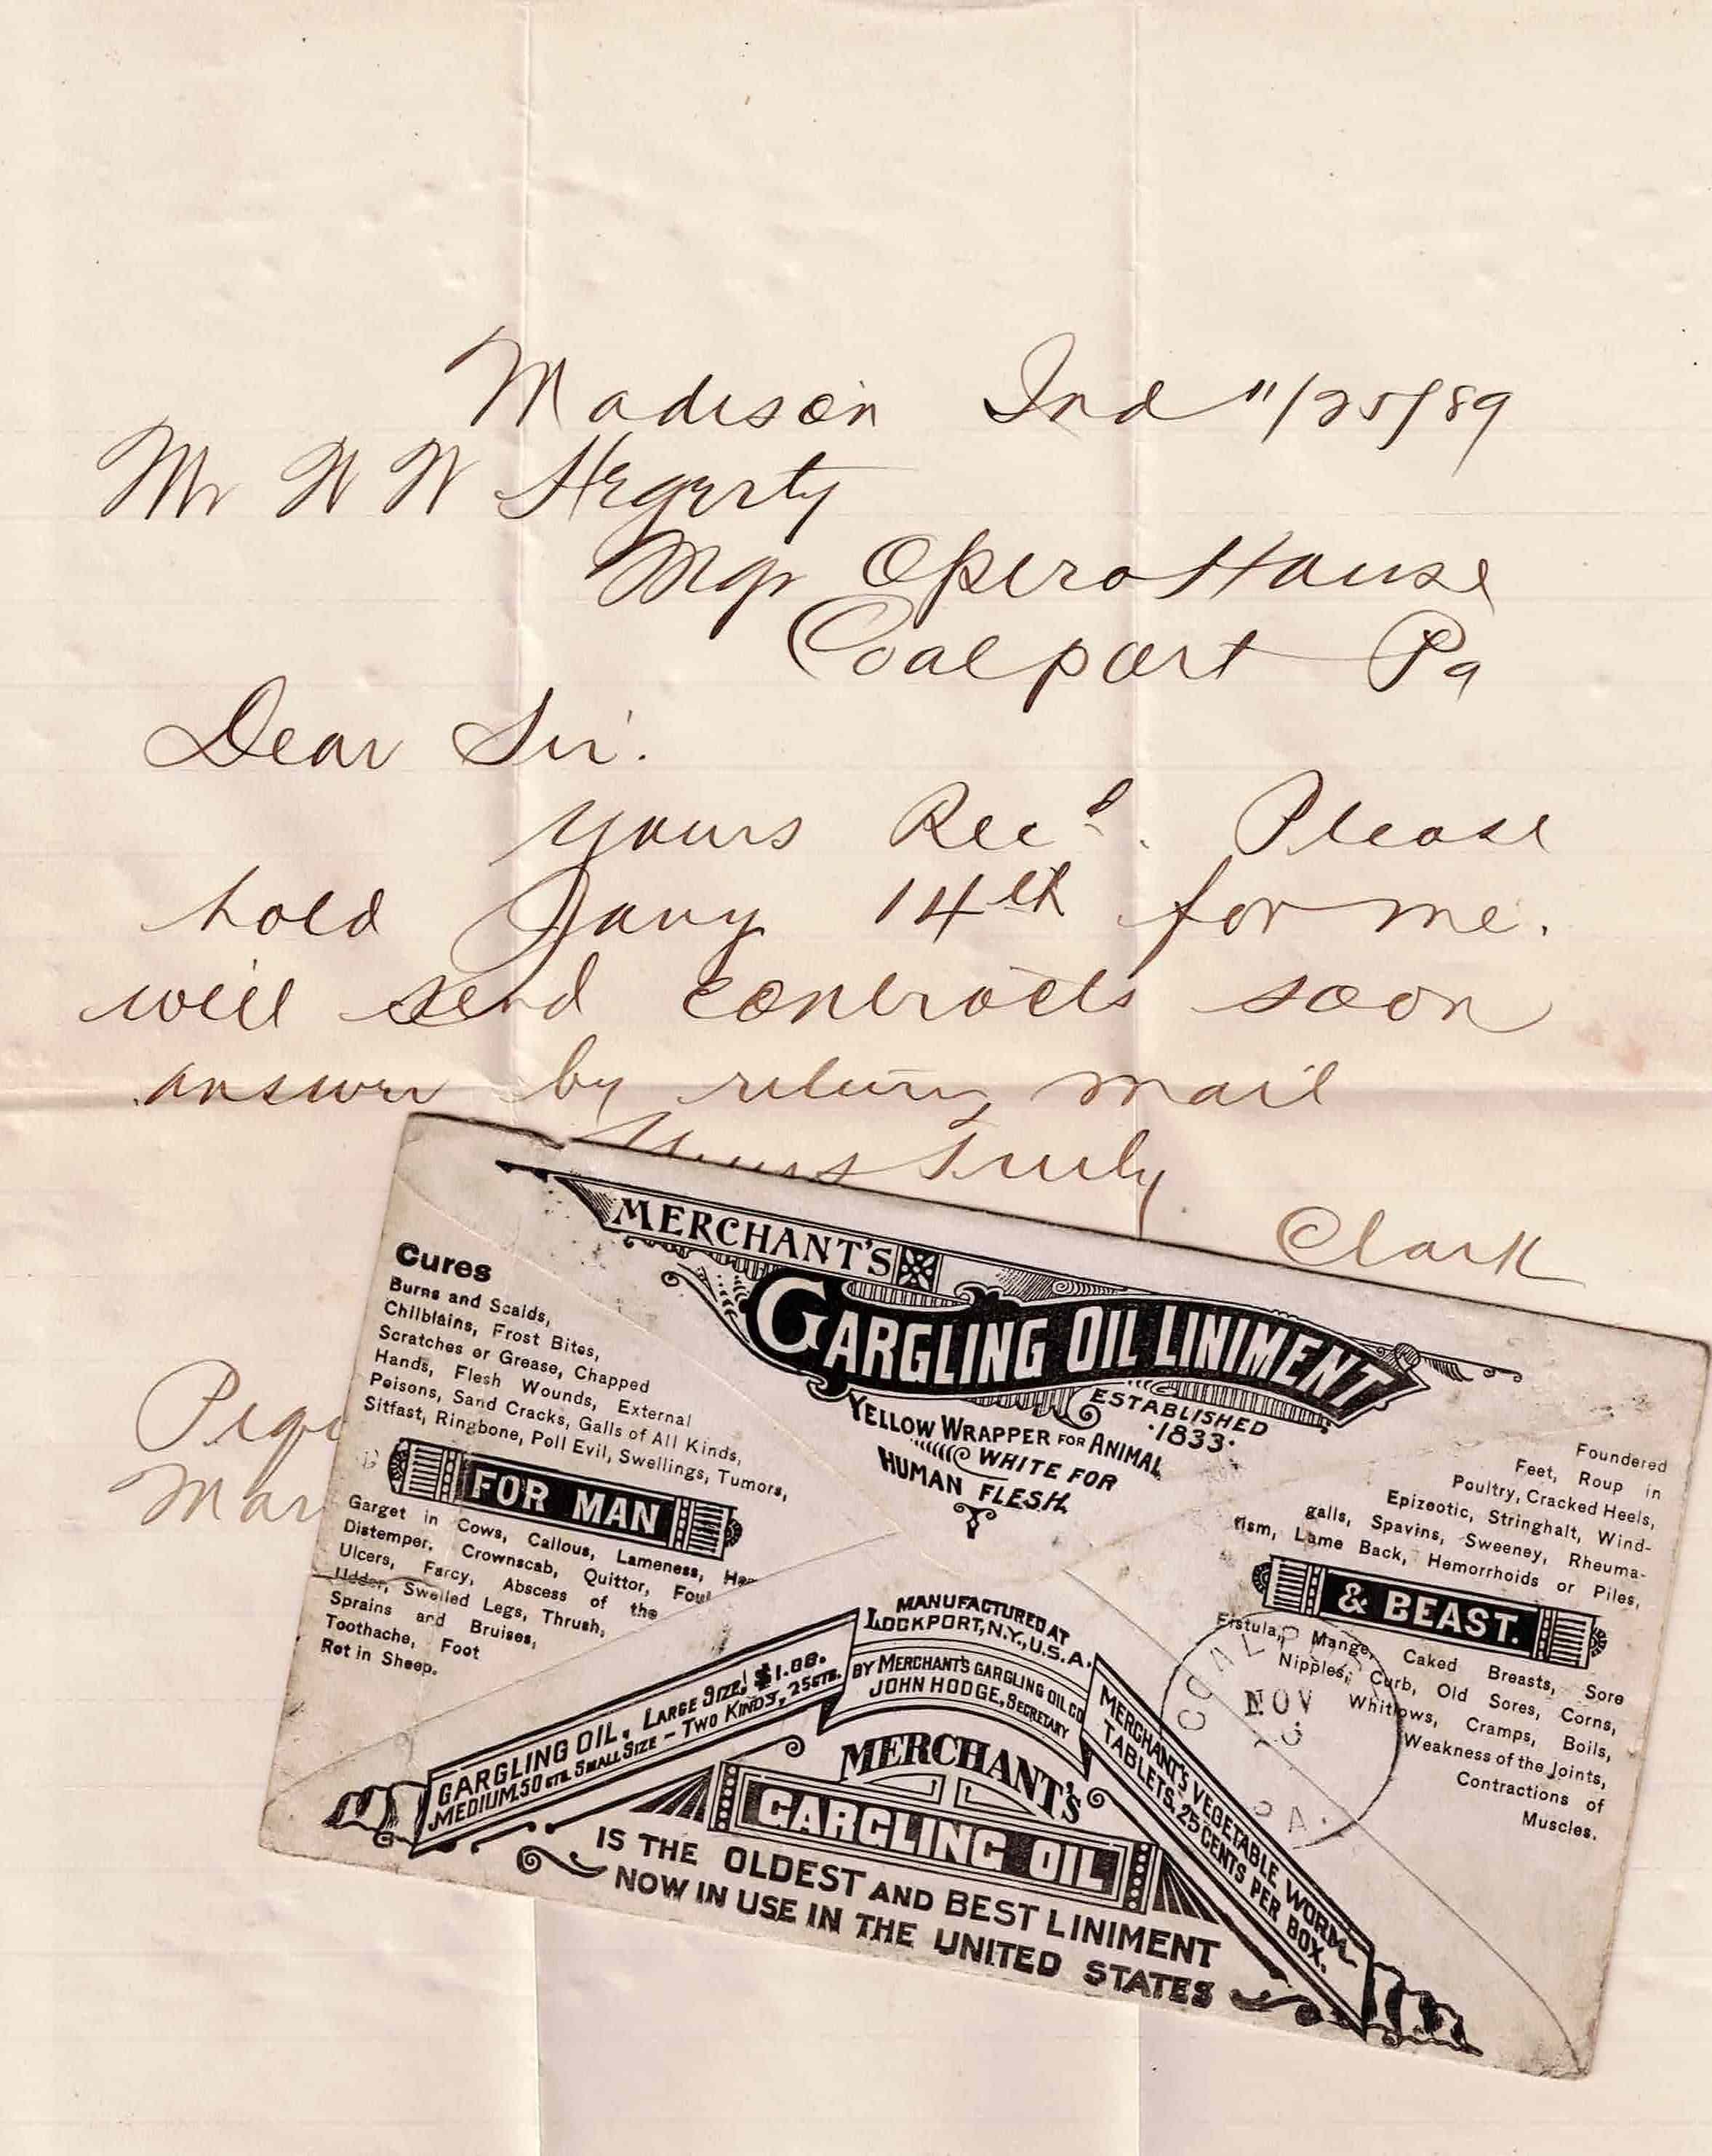 Madison Ind 11/25/89
Mr W W Hegerty
Mgr Opera House
Coalport Pa
Dear Sir.
Yours Recd. Please
hold Jany 14th for me.
will send contracts soon
answer by return mail
Yours Truly
Clark
MERCHANT'S
GARGLING OIL LINIMENT
ESTABLISHED
·1833·
YELLOW WRAPPER FOR ANIMAL
WHITE FOR
HUMAN FLESH.
Cures
Burns and Scalds,
Chilblains, Frost Bites,
Scratches or Grease, Chapped
Hands, Flesh Wounds, External
Poisons, Sand Cracks, Galls of All Kinds,
Sitfast, Ringbone, Poll Evil, Swellings, Tumors,
FOR MAN
Garget in Cows, Callous, Lameness,
Distemper, Crownscab, Quittor, Foul
Ulcers, Farcy, Abscess of the
Udder, Swelled Legs, Thrush,
Sprains and Bruises,
Toothache, Foot
Rot in Sheep.
Foundered
Feet, Roup in
Poultry, Cracked Heels,
Epizootic, Stringhalt, Wind-
galls, Spavins, Sweeney, Rheuma-
tism, Lame Back, Hemorrhoids or Piles,
& BEAST.
Fistula, Mange, Caked Breasts, Sore
Nipples, Curb, Old Sores, Corns,
Whitlows, Cramps, Boils,
Weakness of the Joints,
Contractions of
Muscles.
NOV
PA.
MANUFACTURED AT
LOCKPORT, N.Y., U.S.A.
BY MERCHANT'S GARGLING OIL CO
JOHN HODGE, SECRETARY
GARGLING OIL, LARGE SIZE, $1.00.
MEDIUM, 50 CTS. SMALL SIZE – TWO KINDS, 25 CTS.
MERCHANT'S VEGETABLE WORM
TABLETS, 25 CENTS PER BOX.
MERCHANT'S
GARGLING OIL
IS THE OLDEST AND BEST LINIMENT
NOW IN USE IN THE UNITED STATES